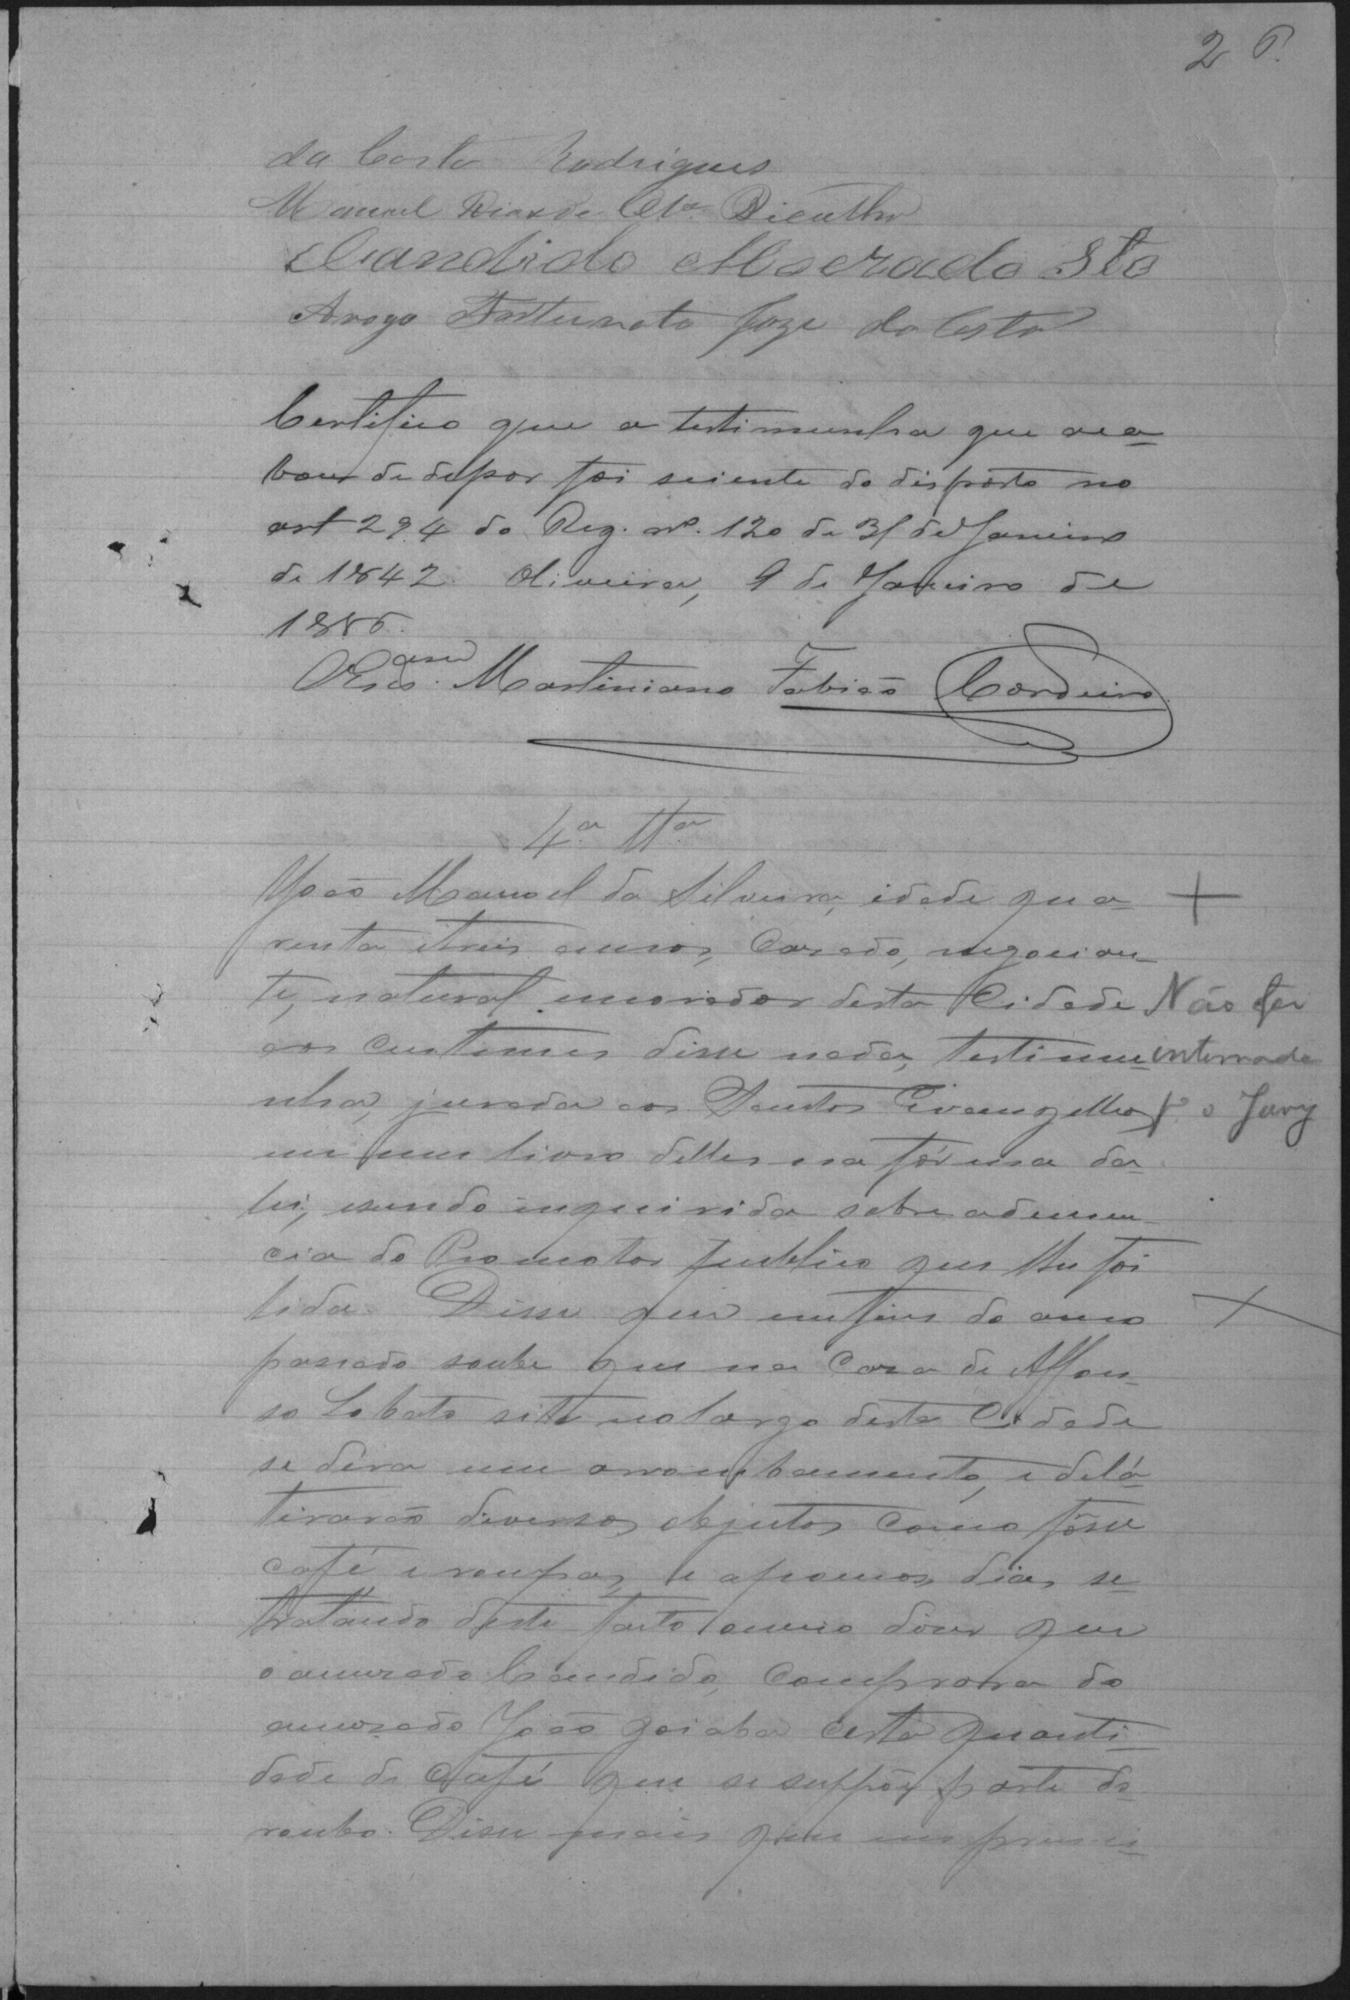 26.
da Costa Rodrigues
Manoel Dias de
Candido Machado
Arogo Fortunato Joze da Costa
Certifico que a testimunha que aca-
bou de depor foi sciente do disposto no
art 294 do Reg. nº. 120 de 31 de Janeiro
de 1842. Oliveira, 9 de Janeiro de
1886.
O Esc. Martiniano Fabião Cordeiro
4.ª Ttª
João Manoel da Silveira, idade qua-
renta e treis annos, Casado, negocian-
te, natural e morador desta Cidade
Não foi
aos custumes disse nada, testimu-
intimada
nha, jurada aos Santos Evangelhos
pª o Jury
em um livro delles na fórma da
lei, e sendo inquirida sobre a denun-
cia do Promotor publico que lhe foi
lida. Disse que em fins do anno
passado soube que na casa de Affon-
so Lobato sita no largo desta Cidade
se déra um arrombamento, e de lá
tirarão diversos objectos como fôsse
café e roupas, e a poucos dias se
tratando deste facto ouvio dizer que
o accusado Candido, comprara do
accusado João goiaba certa quanti-
dade de Café que se suppõe parte do
roubo. Disse mais que